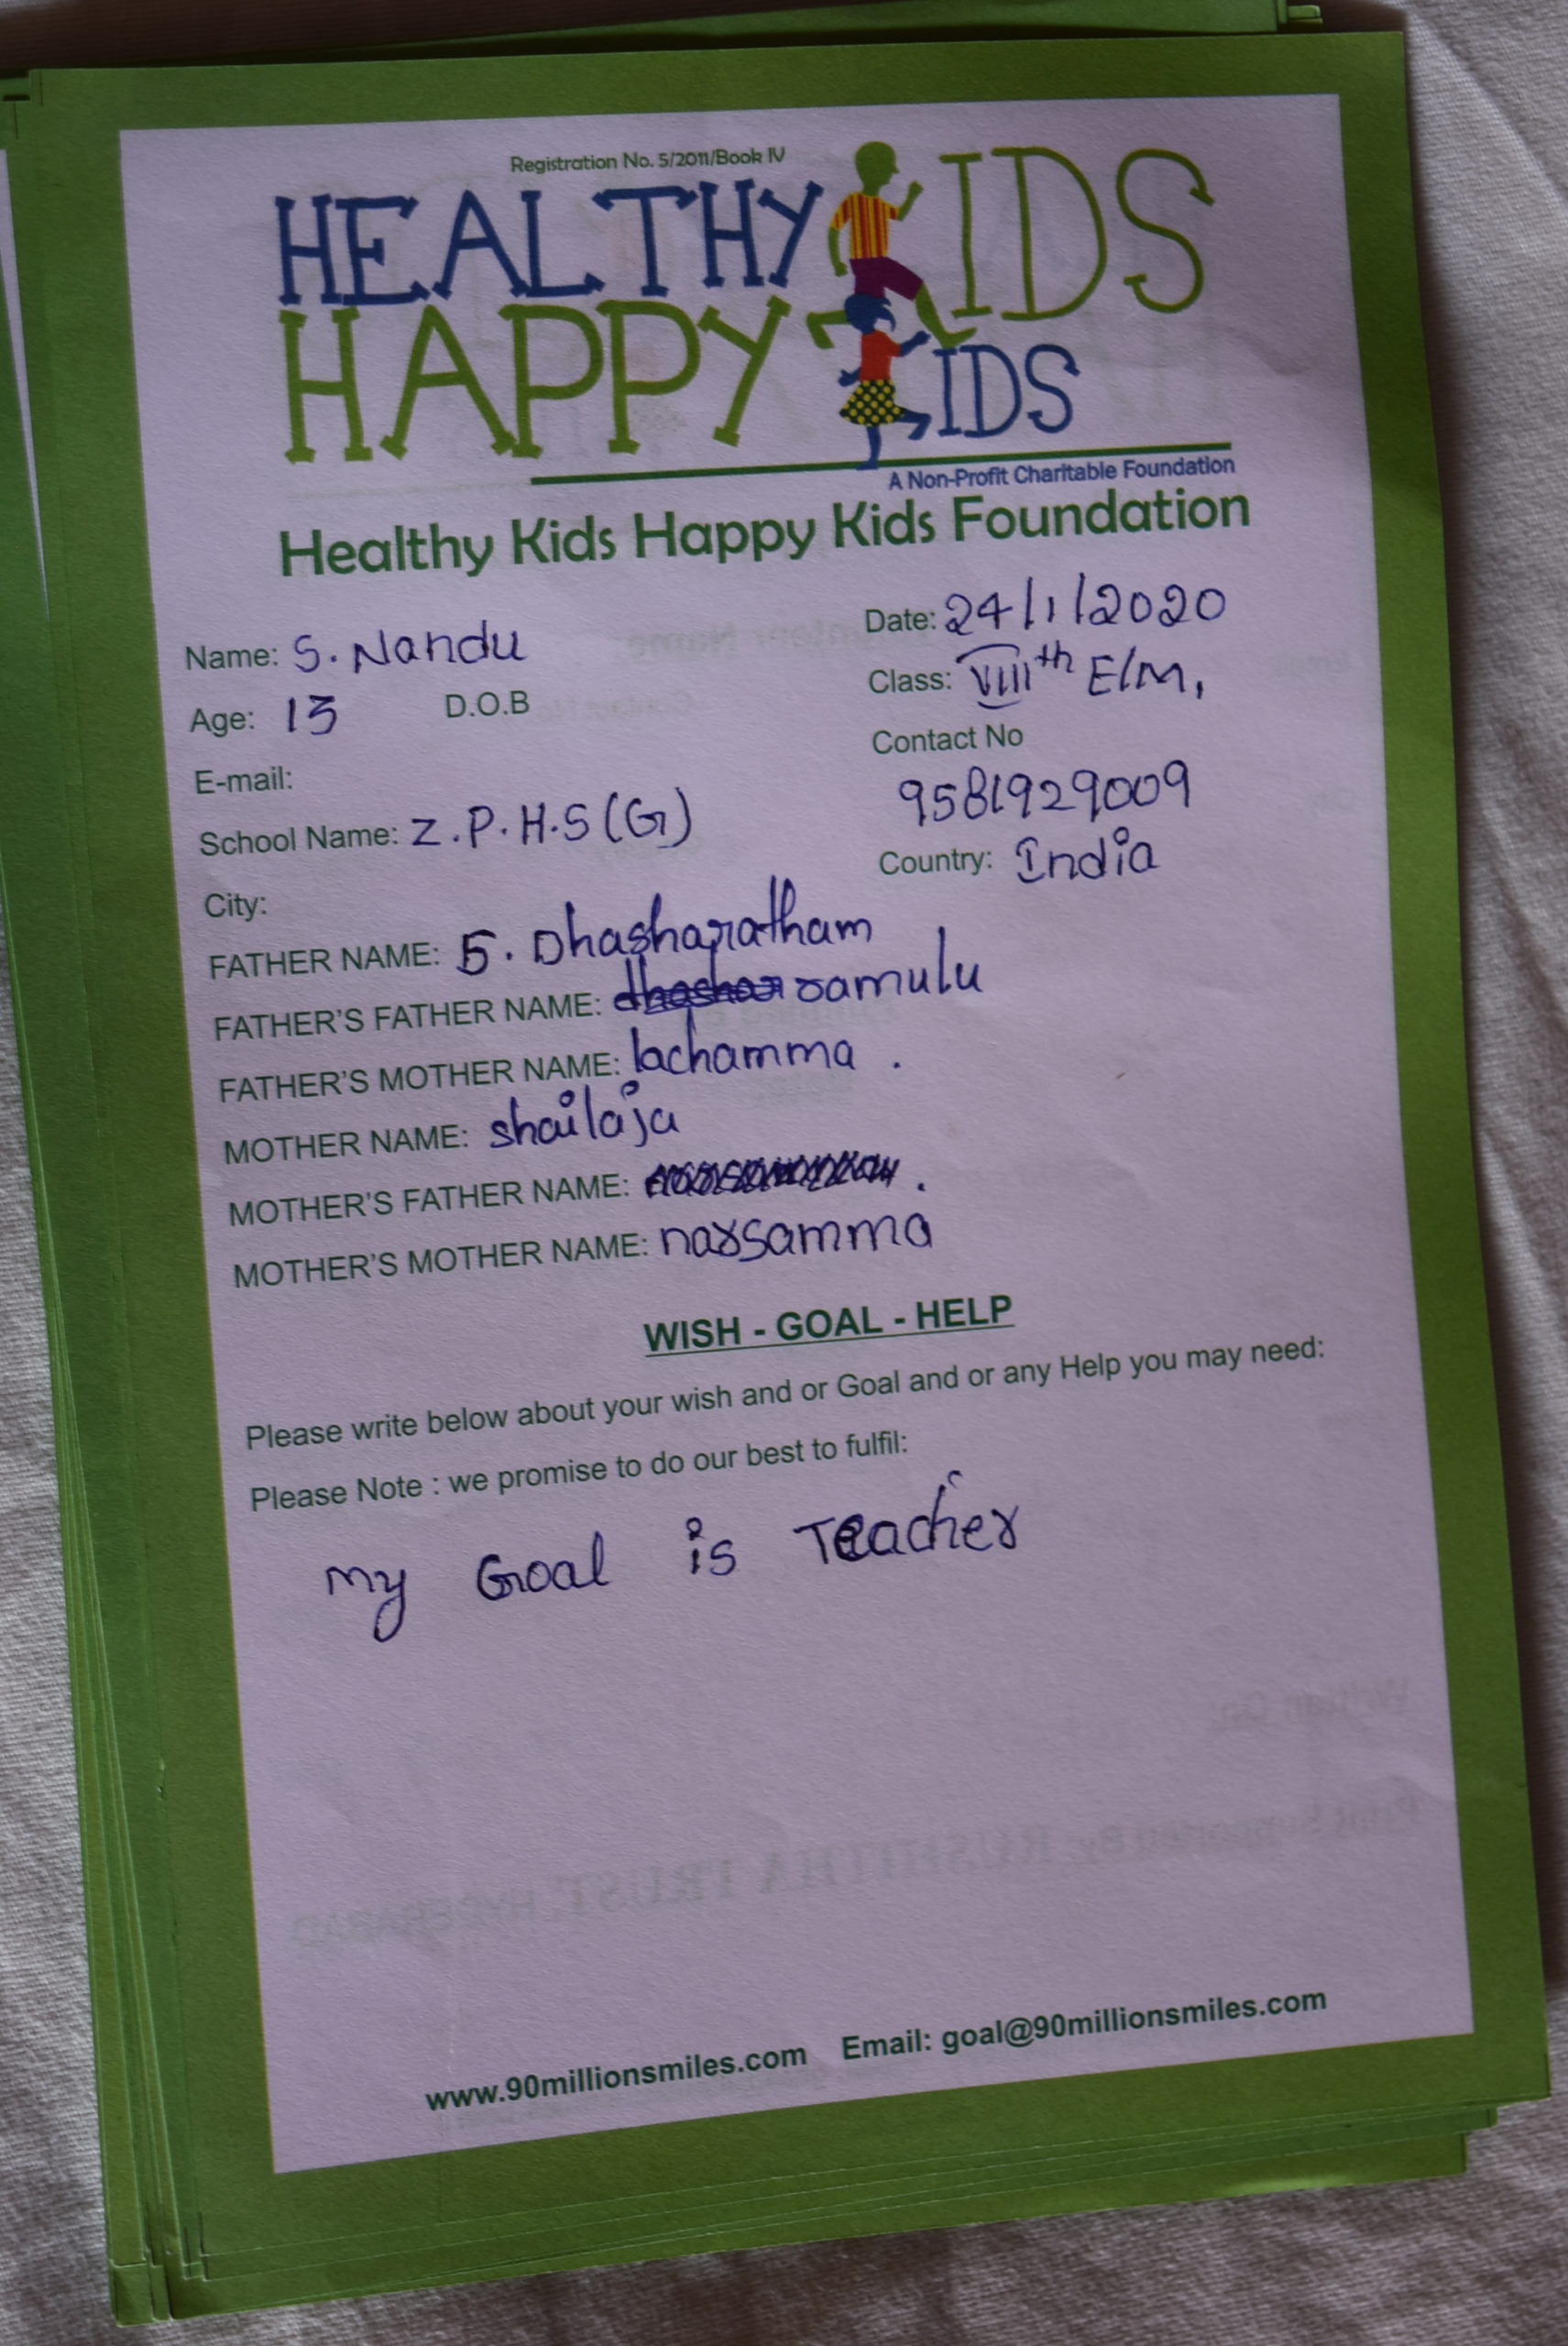 Registration No. 5/2011/Book IV
HEALTHY KIDS
HAPPY KIDS
A Non-Profit Charitable Foundation
Healthy Kids Happy Kids Foundation
Name: S. Nandu
Date: 24/1/2020
Age: 13 D.O.B
Class: VIIIth E/M,
E-mail:
Contact No
9581929009
School Name: Z.P.H.S(G)
Country: India
City:
FATHER NAME: S. Dhasharatham
FATHER'S FATHER NAME: ramulu
FATHER'S MOTHER NAME: lachamma .
MOTHER NAME: shailaja
MOTHER'S FATHER NAME: .
MOTHER'S MOTHER NAME: narsamma
WISH - GOAL - HELP
Please write below about your wish and or Goal and or any Help you may need:
Please Note : we promise to do our best to fulfil:
my Goal is Teacher
www.90millionsmiles.com Email: goal@90millionsmiles.com